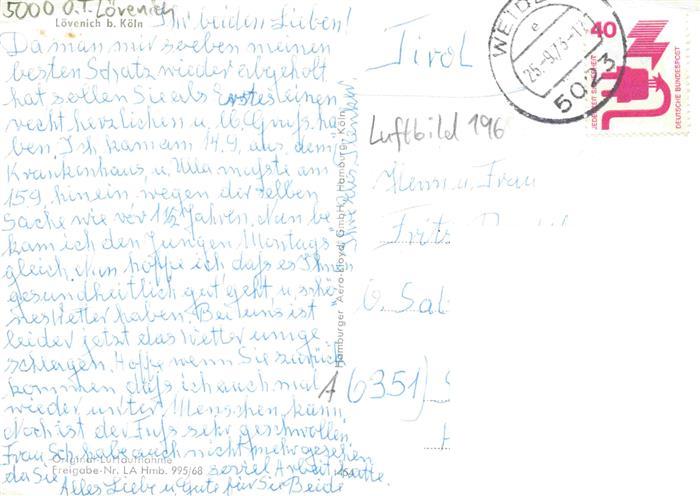 5000 O.T. Lövenich
Lövenich b. Köln
Ihr beiden Lieben!
Da man mir soeben meinen
besten Schatz wieder abgeholt
hat sollen Sie als Erstes einen
recht herzlichen u. Gruß ha
ben. Ich kam am 14.9. aus dem
Krankenhaus, u. Ulla mußte am
15.9. hinein wegen derselben
Sache wie vor 1½ Jahren. Nun be
kam ich den Jungen Montags
gleich. Nun hoffe ich daß es Ihnen
gesundheitlich gut geht, u. schö
nes Wetter haben. Bei uns ist
leider jetzt das Wetter umge
schlagen. Hoffe wenn Sie zurück
kommen daß ich auch mal
wieder unter Menschen kann
Noch ist der Fuß sehr geschwollen
Frau Sch. habe auch nicht mehr gesehen
da Sie soviel Arbeit hatte.
Alles Liebe u. Gute für Sie Beide
Original-Luftaufnahme
Freigabe-Nr. LA Hmb. 995/68
454
Hamburger Aero-Lloyd, GmbH., Hamburg - Köln
WEIDE
e
25.-9.73-17
5023
40
JEDERZEIT SICHERHEIT
DEUTSCHE BUNDESPOST
Tirol
Luftbild 196
Herrn u. Frau
Fritz
b. Sal
A (6351)